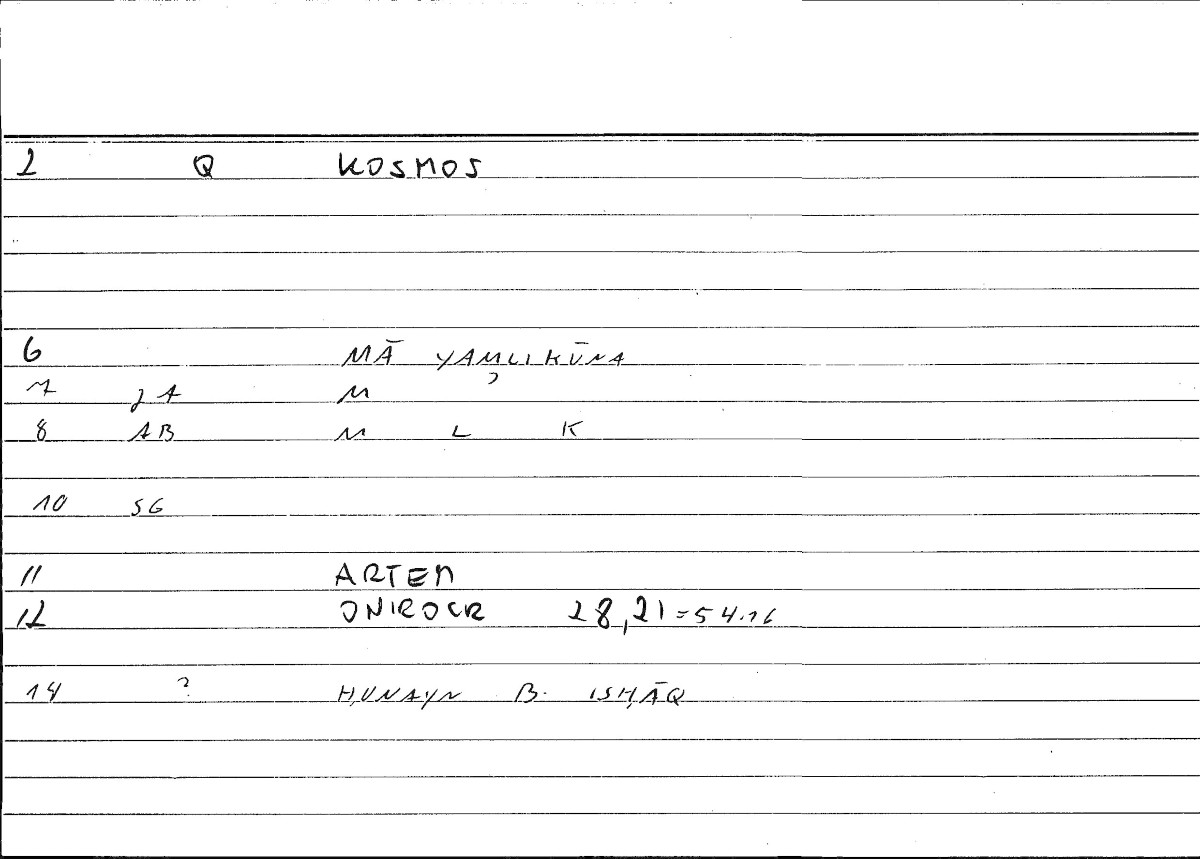 2 Q KOSMOS
6 MĀ YAMLIKŪNA
7 JA M
8 AB M L K
10 SG
11 ARTEM
12 ONIROCR 28,21=54.16
14 ? ḤUNAYN B. ISḤĀQ